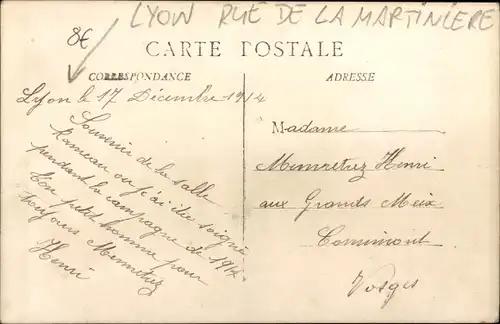 8€
LYON RUE DE LA MARTINIERE
CARTE POSTALE
CORRESPONDANCE
ADRESSE
Lyon le 17 Décembre 1914
Souvenir de la salle
Rameau ou j'ai été soigné
pendant la campagne de 1914
Ton petit homme pour
toujours Memretrez
Henri
Madame
Memretrez Henri
aux Grands Meix
Cornimont
Vosges